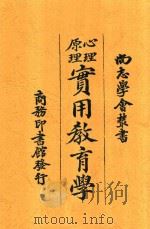 尚志學會叢書
心理
原理
實用教育學
商務印書館發行
mtoou.info